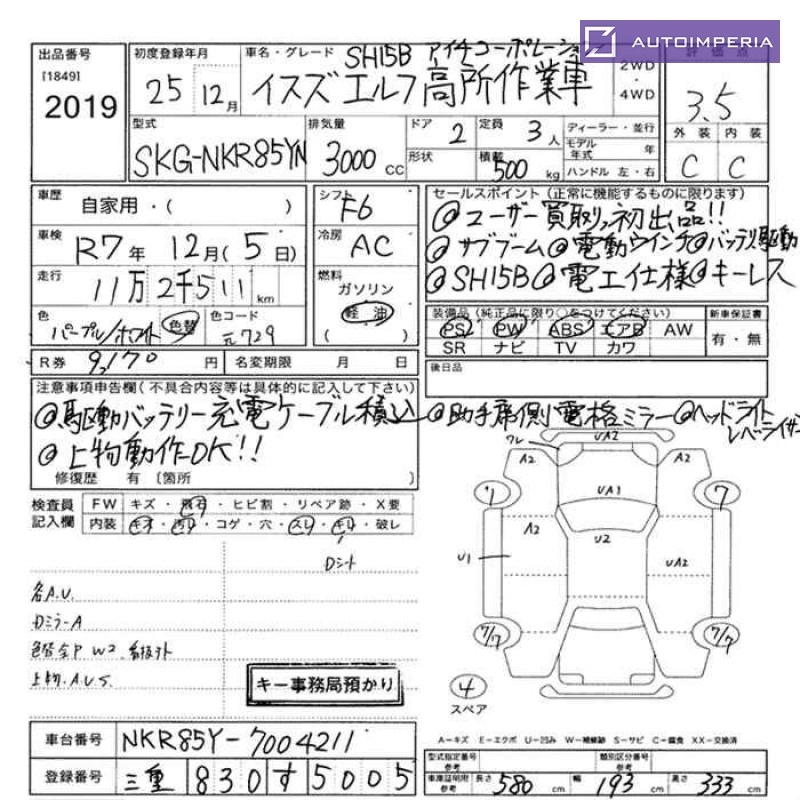 AUTOIMPERIA
出品番号
[1849]
2019
初度登録年月
25 12月
車名・グレード
SH15B アイチコーポレーション
イスズ エルフ 高所作業車
2WD
・
4WD
評価点
3.5
外装 内装
C C
型式
SKG-NKR85YN
排気量
3000 CC
ドア 2
形状
定員 3人
積載 500 kg
ディーラー・並行
モデル年式 年
ハンドル 左・右
車歴 自家用・( )
車検 R7年 12月(5日)
走行 11万2千511 km
色 パープル/ホワイト 色替
色コード 元729
シフト F6
冷房 AC
燃料
ガソリン
軽油
( )
セールスポイント(正常に機能するものに限ります)
@ユーザー買取り初出品!!
@サブブーム@電動ウインチ@バッテリ駆動
@SH15B@電工仕様@キーレス
装備品(純正品に限り○をつけてください)
PS PW ABS エアB AW
SR ナビ TV カワ
新車保証書
有・無
R券 9,170 円
名変期限 月 日
後日品
注意事項申告欄(不具合内容等は具体的に記入して下さい)
@駆動バッテリー充電ケーブル積込@助手席側電格ミラー@ヘッドライト
レベライザー
@上物動作OK!!
修復歴 有〔箇所 〕
検査員記入欄
FW キズ・飛石・ヒビ割・リペア跡・X要
内装 キズ・汚レ・コゲ・穴・スレ・キレ・破レ
Dシート
各A.U.
Dミラ-A
色替全P W2.看板外
上物.A.U.S.
キー事務局預かり
ワレ UA2
A2 A2
7 UA1 7
A2 U2
U1 UA2
7/7 7/7
4
スペア
A-キズ E-エクボ U-凹み W-補修跡 S-サビ C-腐食 XX-交換済
車台番号 NKR85Y-7004211
登録番号 三重 830 す 5005
型式指定番号
参考
類別区分番号
参考
車庫証明用
参考
長さ 580 cm 幅 193 cm 高さ 333 cm